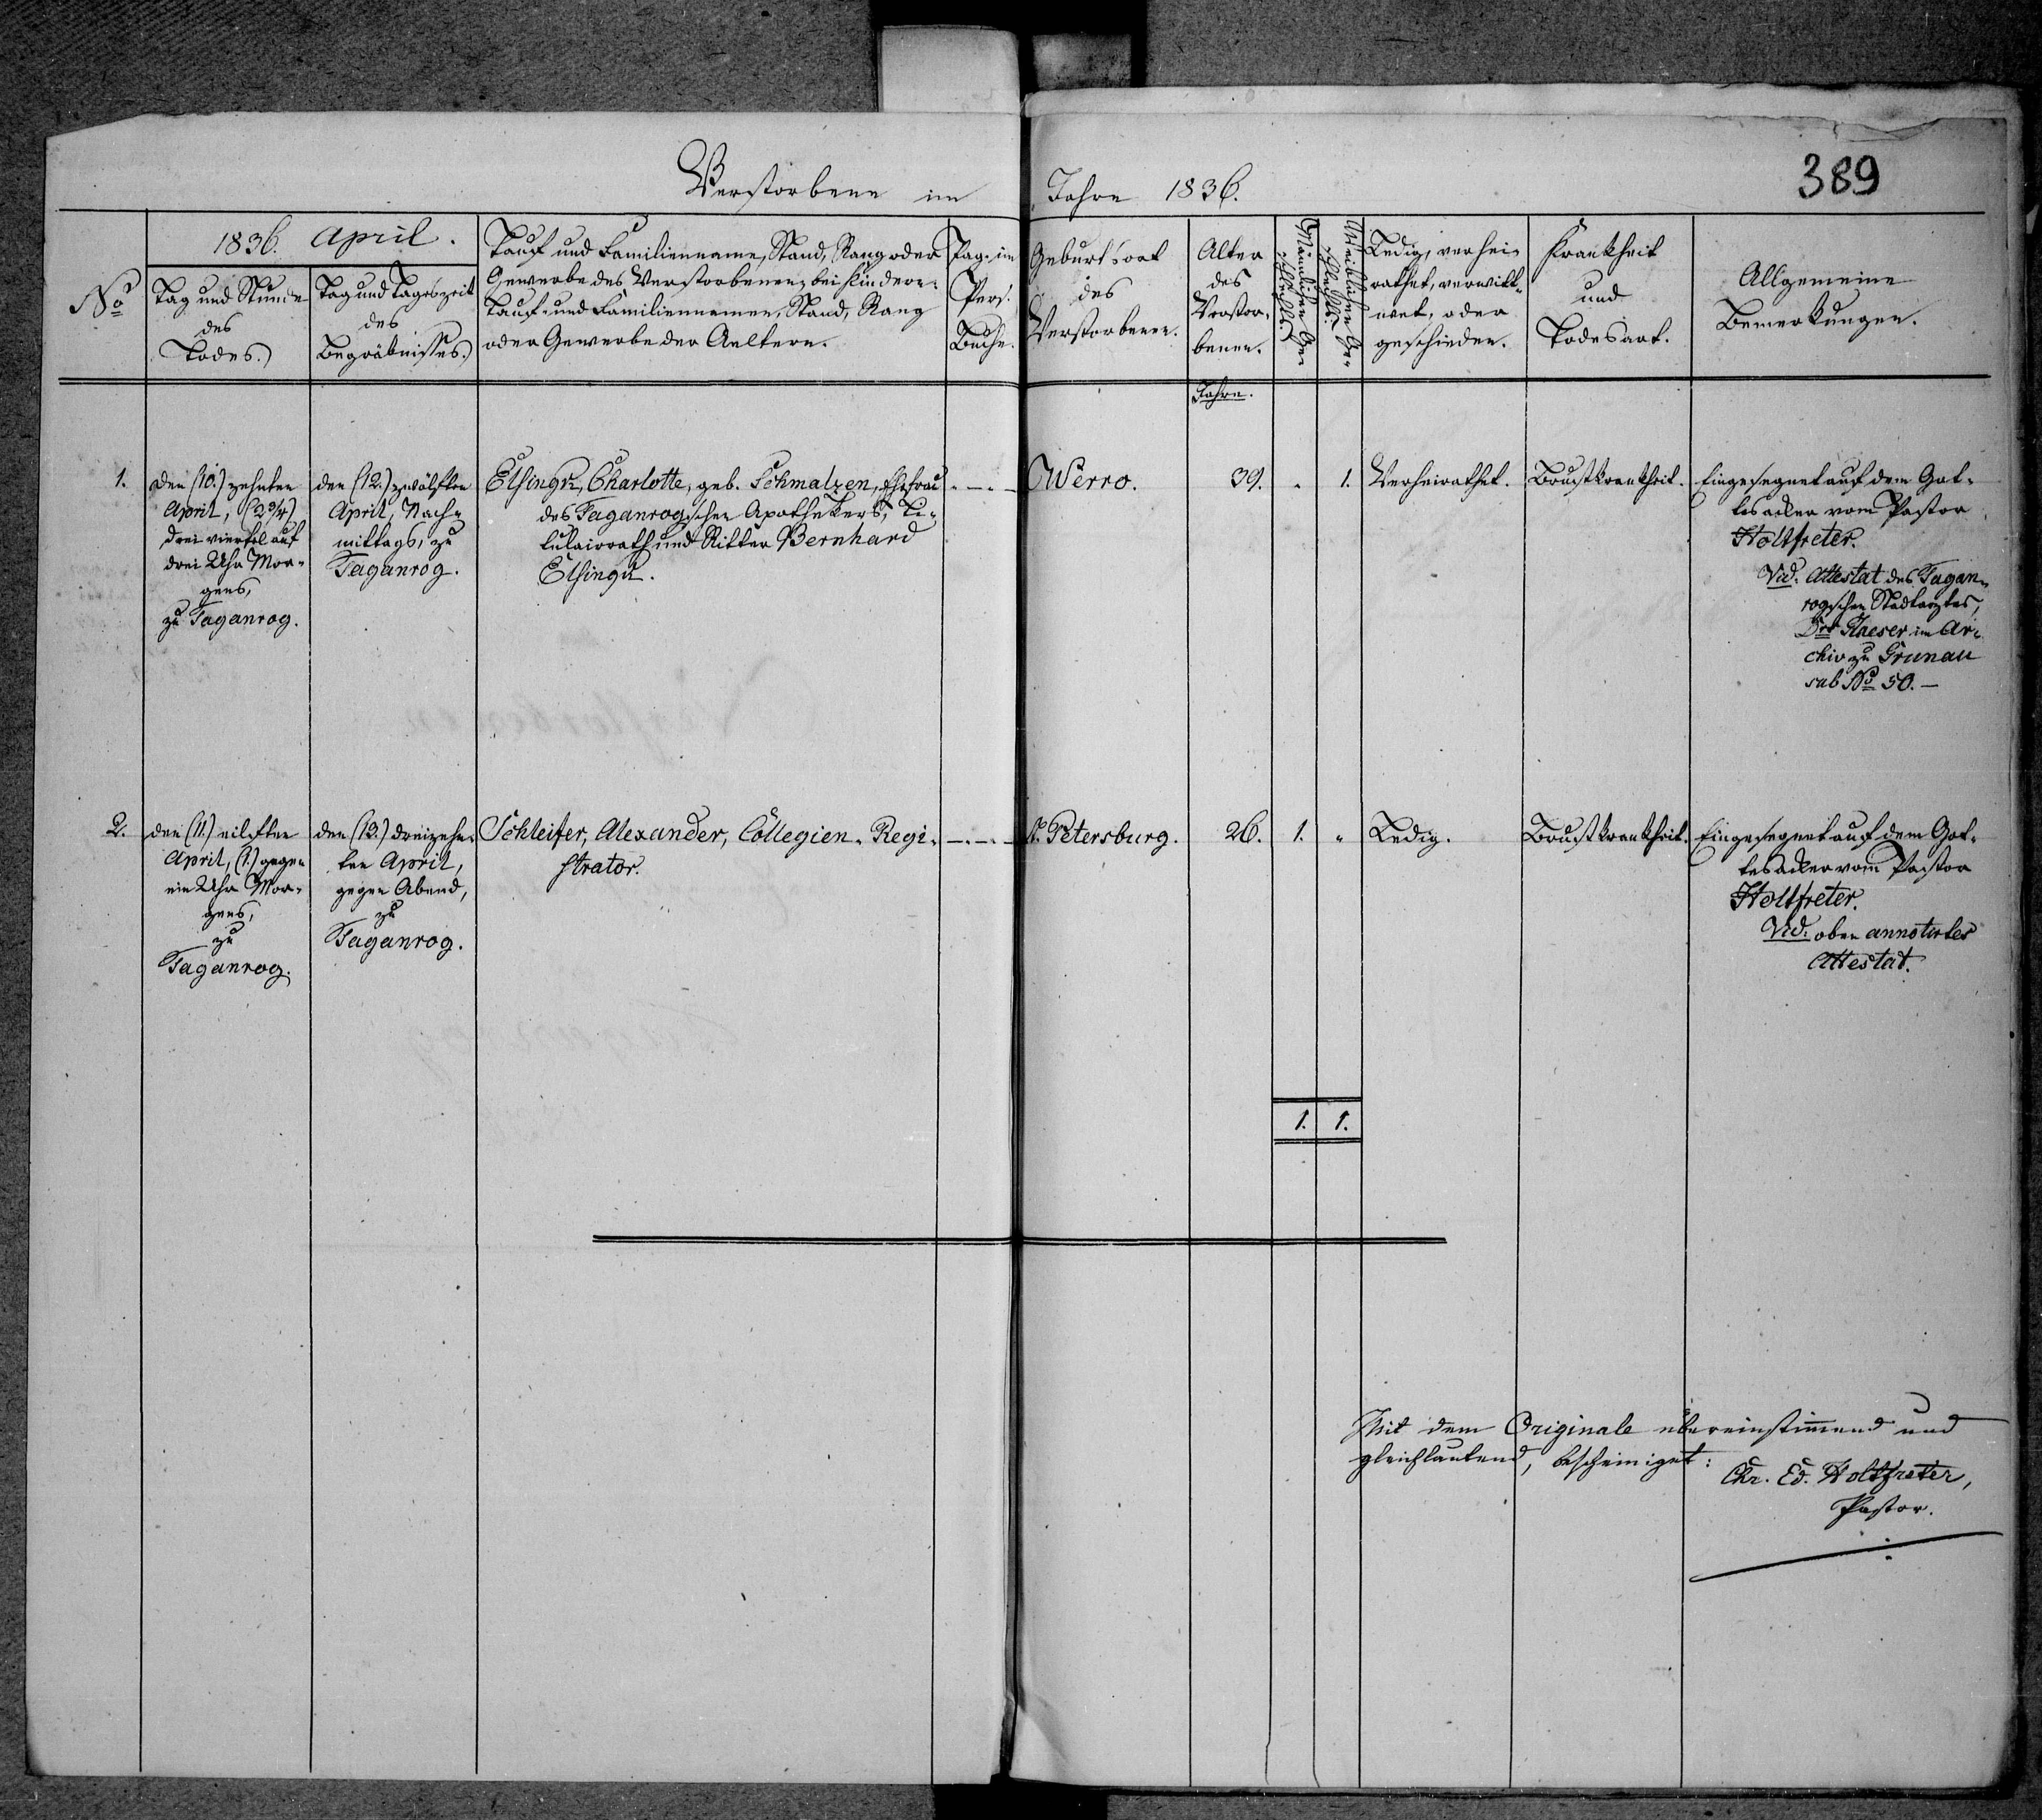 389
Verstorbene im Jahre 1836.
No
1836. April.
Tag und Stunde
des
Todes.)
Tag und Tageszeit
des
Begräbnisses.)
Tauf und Familienname, Stand, Rang oder
Gewerbe des Verstorbenen, bei Kindern:
Tauf- und Familiennamen, Stand, Rang
oder Gewerbe der Aeltern.
Pag. im
Pers.
Buche.
Geburtsort
des
Verstorbenen.
Alter
des
Verstor-
benen.
Männlichen Ge-
schlechts.
Weiblichen Ge-
schlechts.
Ledig, verhei-
rathet, verwitt-
wet, oder
geschieden.
Krankheit
und
Todesart.
Allgemeine
Bemerkungen.
Jahre.
1.
den (10.) zehnten
April, (2¾)
drei viertel auf
drei Uhr Mor-
gens,
zu Taganrog.
den (12.) zwölften
April, Nach-
mittags, zu
Taganrog.
Elsingk, Charlotte, geb. Schmalzen, Ehefrau
des Taganrogschen Apothekers, Ti-
tulairrath und Ritter Bernhard
Elsingk.
Werro.
39.
"
1.
Verheirathet.
Brustkrankheit.
Eingesegnet auf dem Got-
tesacker vom Pastor
Holtfreter.
Vid. Attestat des Tagan-
rogschen Stadtarztes,
Drs Klaeser im Ar-
chiv zu Grunau
sub No 50.—
2.
den (11.) eilften
April, (1.) gegen
ein Uhr Mor-
gens,
zu
Taganrog.
den (13.) dreizehn-
ten April,
gegen Abend,
zu
Taganrog.
Schleifer, Alexander, Collegien-Regi-
strator.
St. Petersburg.
26.
1.
"
Ledig.
Brustkrankheit.
Eingesegnet auf dem Got-
tesacker vom Pastor
Holtfreter.
Vid. oben annotirtes
Attestat.
1. 1.
Mit dem Originale übereinstimmend und
gleichlautend, bescheiniget:
Chr. Ed. Holtfreter,
Pastor.